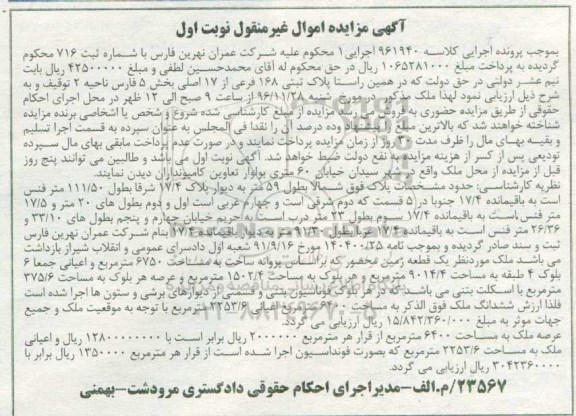 آگهی مزایده اموال غیرمنقول نوبت اول
بموجب پرونده اجرایی کلاسه ۹۶۱۹۴۰ اجرایی۱ محکوم علیه شرکت عمران نهرین فارس با شماره ثبت ۷۱۶ محکوم
گردیده به پرداخت مبلغ ۱۰۶۵۲۸۱۰۰۰ ریال در حق محکوم له آقای محمدحسین لطفی و مبلغ ۴۲۵۰۰۰۰۰ ریال بابت
نیم عشر دولتی در حق دولت که در همین راستا پلاک ثبتی ۱۶۸ فرعی از ۱۷ اصلی بخش ۵ فارس ناحیه ۲ توقیف و به
شرح ذیل ارزیابی نمود لهذا ملک مذکور در مورخ شنبه ۹۶/۱۱/۲۸ از ساعت ۹ صبح الی ۱۲ ظهر در محل اجرای احکام
حقوقی از طریق مزایده حضوری به فروش میرسد مزایده از مبلغ کارشناسی شده شروع و شخص یا اشخاصی برنده مزایده
شناخته خواهند شد که بالاترین مبلغ را پیشنهاد وده درصد آن را نقدا فی المجلس به عنوان سپرده به قسمت اجرا تسلیم
و بقیه بهای مال را ظرف مدت روز از زمان مزایده پرداخت نمایند و در صورت عدم پرداخت مابقی بهای مال سپرده
تودیعی پس از کسر از هزینه مزایده به نفع دولت ضبط خواهد شد. آگهی نوبت اول می باشد و طالبین می توانند پنج روز
قبل از مزایده از محل ملک واقع در شهر سیدان خیابان ۶۰ متری بولوار تعاون کامیونداران دیدن نمایند.
نظریه کارشناسی: حدود مشخصات پلاک فوق شمالا بطول ۵۹ متر به دیوار پلاک ۱۷/۴ شرقا بطول ۱۱۱/۵۰ متر فنس
است به باقیمانده ۱۷/۴ جنوبا در ۵ قسمت که دوم شرقی است و چهارم غربی است اول و دوم بطول های ۲۰ متر و ۱۷/۵
متر فنس است به باقیمانده ۱۷/۴ سوم بطول ۲۳ متر درب است به حریم خیابان چهارم و پنجم بطول های ۳۳/۱۰ و
۲۶/۳۶ متر فنس است به باقیمانده ۱۷/۴ بطول ۹۱/۳۰ به باقیمانده ۱۷/۴ بنام شرکت عمران نهرین فارس
ثبت و سند صادر گردیده و بموجب نامه ۱۴۰۴۰۰/۲۵ مورخ ۹۱/۹/۱۶ شعبه اول دادسرای عمومی و انقلاب شیراز بازداشت
می باشد ملک موردنظر یک قطعه زمین محصور که براساس پروانه ساخت به مساحت ۶۷۵۰ مترمربع و اعیانی جمعا ۶
بلوک ۴ طبقه به مساحت ۹۰۱۴/۴ مترمربع و هر بلوک به مساحت ۱۵۰۲/۴ مترمربع و عرصه هر بلوک به مساحت ۳۷۵/۶
مترمربع با اسکلت بتنی می باشد که در هر بلوک فونداسیون بتنی و قسمتی از دیوارهای برشی و ستون ها اجرا شده است
فلذا ارزش ششدانگ ملک فوق الذکر به مساحت ۶۴۰۰ مترمربع اعیانی ۲۲۵۳/۶ مترمربع با توجه به موقعیت ملک و جمیع
جهات موثر به مبلغ ۱۵/۸۴۲/۳۶۰/۰۰۰ ریال ارزیابی می گردد.
عرصه ملک به مساحت ۶۴۰۰ مترمربع از قرار هر مترمربع ۲۰۰۰۰۰۰ ریال برابر است با ۱۲۸۰۰۰۰۰۰۰۰ ریال و اعیانی
ملک به مساحت ۲۲۵۳/۶ مترمربع که بصورت فونداسیون اجرا شده است از قرار هر مترمربع ۱۳۵۰۰۰۰ ریال برابر با
۳۰۴۲۳۶۰۰۰۰ ریال ارزیابی می گردد.
۲۳۵۶۷/م.الف-مدیراجرای احکام حقوقی دادگستری مرودشت-بهمنی